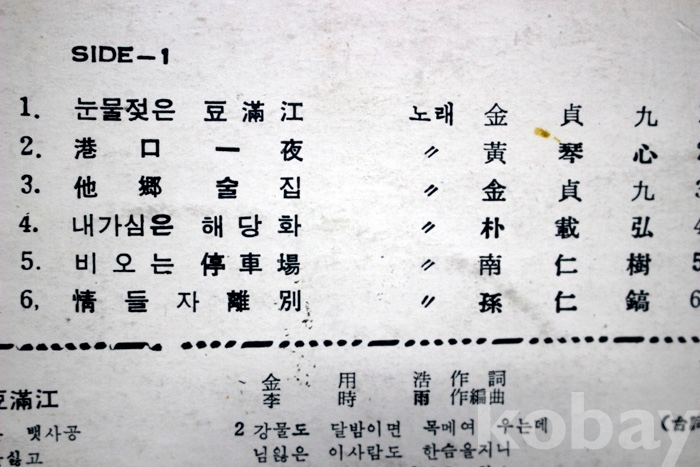 SIDE-1
1. 눈물젖은 豆滿江 노래 金貞九
2. 港口一夜 〃 黃琴心
3. 他鄕술집 〃 金貞九 3
4. 내가심은 해당화 〃 朴載弘 4
5. 비오는 停車場 〃 南仁樹 5
6. 情들자離別 〃 孫仁鎬 6
金用浩 作詞
豆滿江 李時雨 作編曲
뱃사공 2 강물도 달밤이면 목메여 우는데 (台詞
싫고 님잃은 이사람도 한숨을지니
kobay